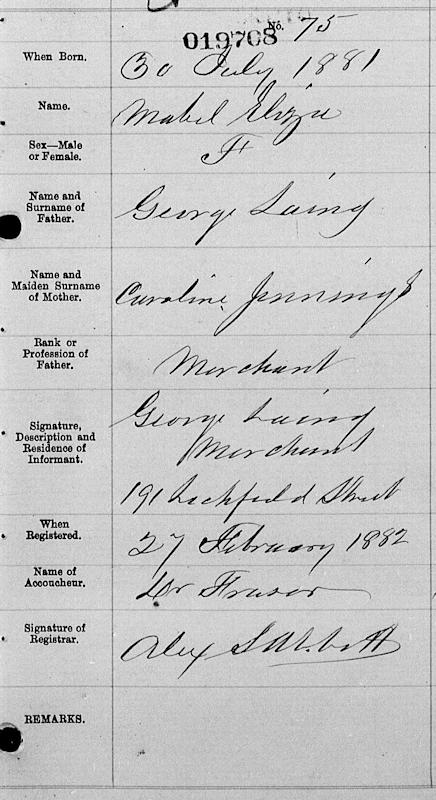 019708 No. 75
When Born. 30 July 1881
Name. Mabel Eliza
Sex—Male
or Female. F
Name and
Surname of
Father. George Laing
Name and
Maiden Surname
of Mother. Caroline Jennings
Rank or
Profession of
Father. Merchant
Signature,
Description and
Residence of
Informant. George Laing
Merchant
191 Street
When
Registered. 27 February 1882
Name of
Accoucheur. Dr Fraser
Signature of
Registrar. Alex
REMARKS.